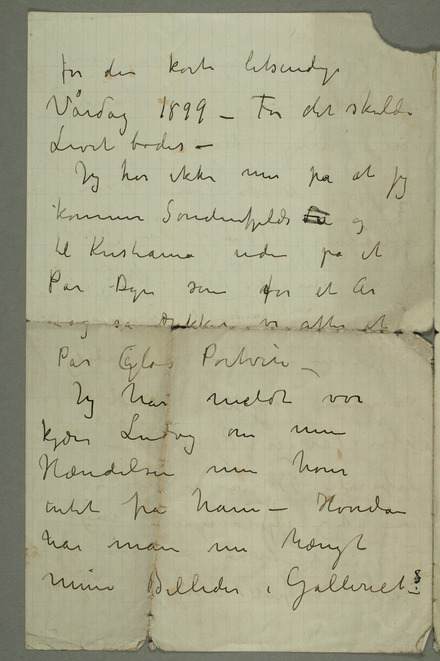 for den korte letsindige
Vårdag 1899 – For det skulde
Livet bødes –
Jeg har ikke mer på at jeg
kommer Søndenfjelds og
til Kristiania uden på et
Par Dage som for et År
og så drikker vi atter et
Par Glas Portvin –
Jeg har meldt vor
kjære Ludvig om min
Hændelse men hører
intet fra ham – Hvordan
har man nu hængt
mine Billeder i Galleriet –